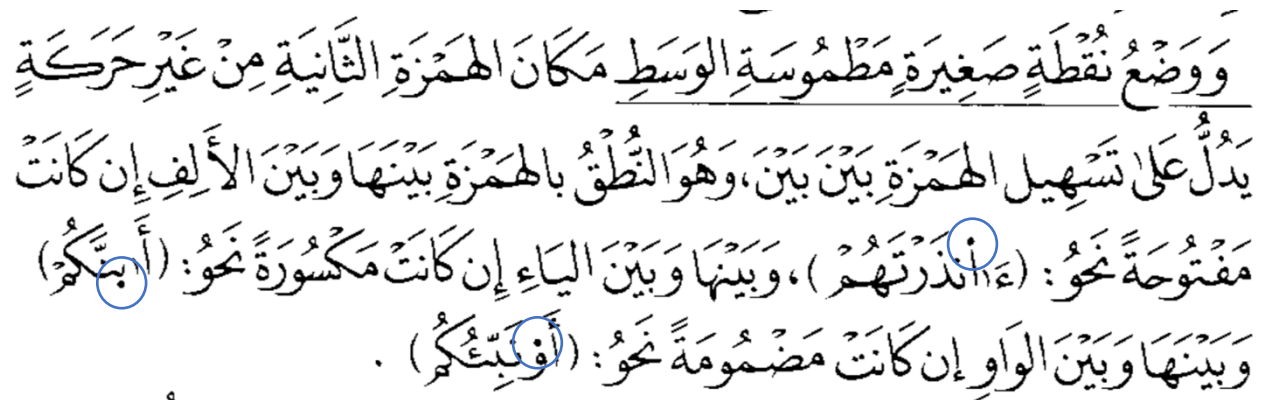 وَوَضْعُ نُقْطَةٍ صَغِيرَةٍ مَطْمُوسَةِ الوَسَطِ مَكَانَ الهَمْزَةِ الثَّانِيَةِ مِنْ غَيْرِ حَرَكَةٍ
يَدُلُّ عَلَىٰ تَسْهِيلِ الهَمْزَةِ بَيْنَ بَيْنَ، وَهُوَ النُّطْقُ بِالهَمْزَةِ بَيْنَهَا وَبَيْنَ الأَلِفِ إِن كَانَتْ
مَفْتُوحَةً نَحْوُ: (ءَاا۬نذَرْتَهُمْ)، وَبَيْنَهَا وَبَيْنَ اليَاءِ إِن كَانَتْ مَكْسُورَةً نَحْوُ: (أَا۪بنَّكُمْ)
وَبَيْنَهَا وَبَيْنَ الوَاوِ إِن كَانَتْ مَضْمُومَةً نَحْوُ: (أَو۬نَبِّئُكُم).